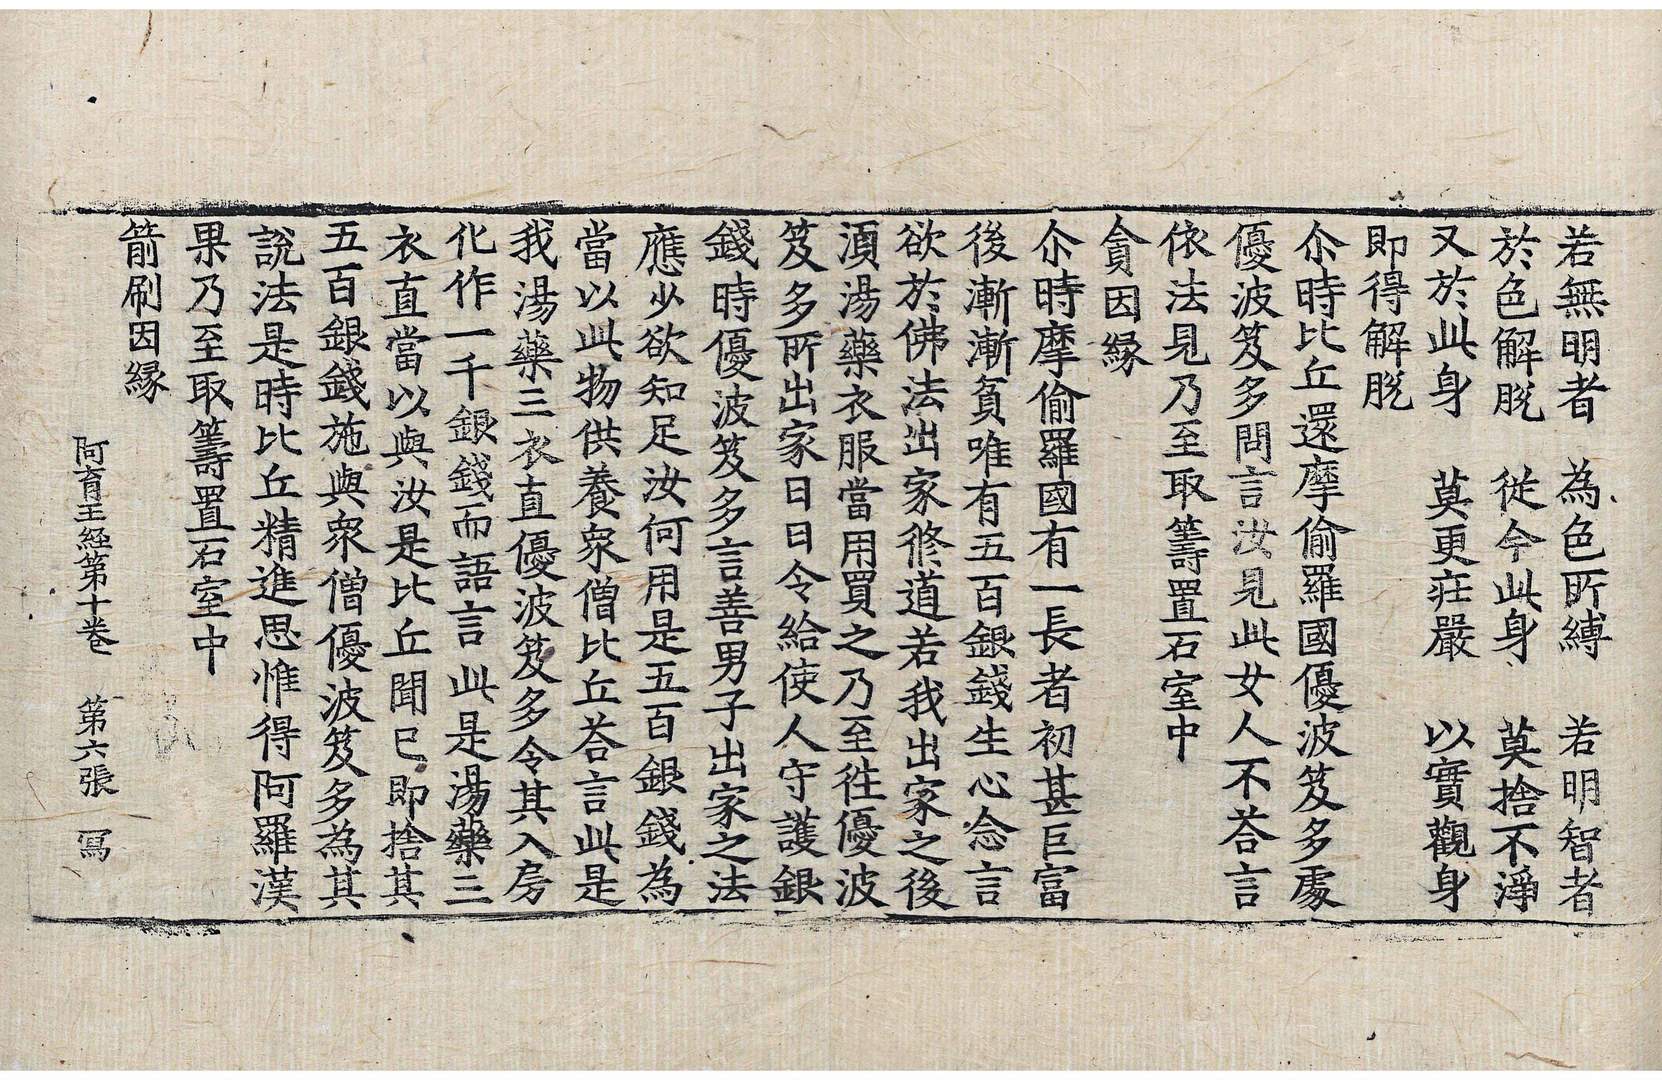 若無明者　為色所縛　若明智者
於色解脫　從今此身　莫捨不淨
又於此身　莫更莊嚴　以實觀身
即得解脫
尒時比丘還摩偷羅國優波笈多處
優波笈多問言汝見此女人不荅言
依法見乃至取籌置石室中
貪因緣
尒時摩偷羅國有一長者初甚巨富
後漸漸貧唯有五百銀錢生心念言
欲於佛法出家修道若我出家之後
須湯藥衣服當用買之乃至往優波
笈多所出家日日令給使人守護銀
錢時優波笈多言善男子出家之法
應少欲知足汝何用是五百銀錢為
當以此物供養衆僧比丘荅言此是
我湯藥三衣直優波笈多令其入房
化作一千銀錢而語言此是湯藥三
衣直當以與汝是比丘聞已即捨其
五百銀錢施與衆僧優波笈多為其
說法是時比丘精進思惟得阿羅漢
果乃至取籌置石室中
箭刷因緣
阿育王經第十卷　第六張　冩